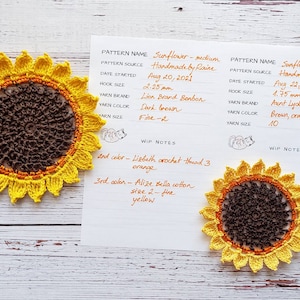 PATTERN NAME Sunflower - medium
PATTERN SOURCE Handmade by Raine
DATE STARTED Aug 20, 2021
HOOK SIZE 2.25 mm
YARN BRAND Lion Brand Bonbon
YARN COLOR Dark brown
YARN SIZE Fine - 2
WIP NOTES
2nd color - Lizbeth crochet thread 3
orange
3rd color - Alize Bella cotton
size 2 - fine
yellow
PATTERN NAME Sunf
PATTERN SOURCE Handm
DATE STARTED Aug
HOOK SIZE
YARN BRAND Aunt Ly
YARN COLOR Brown,
YARN SIZE 10
WIP NOTES